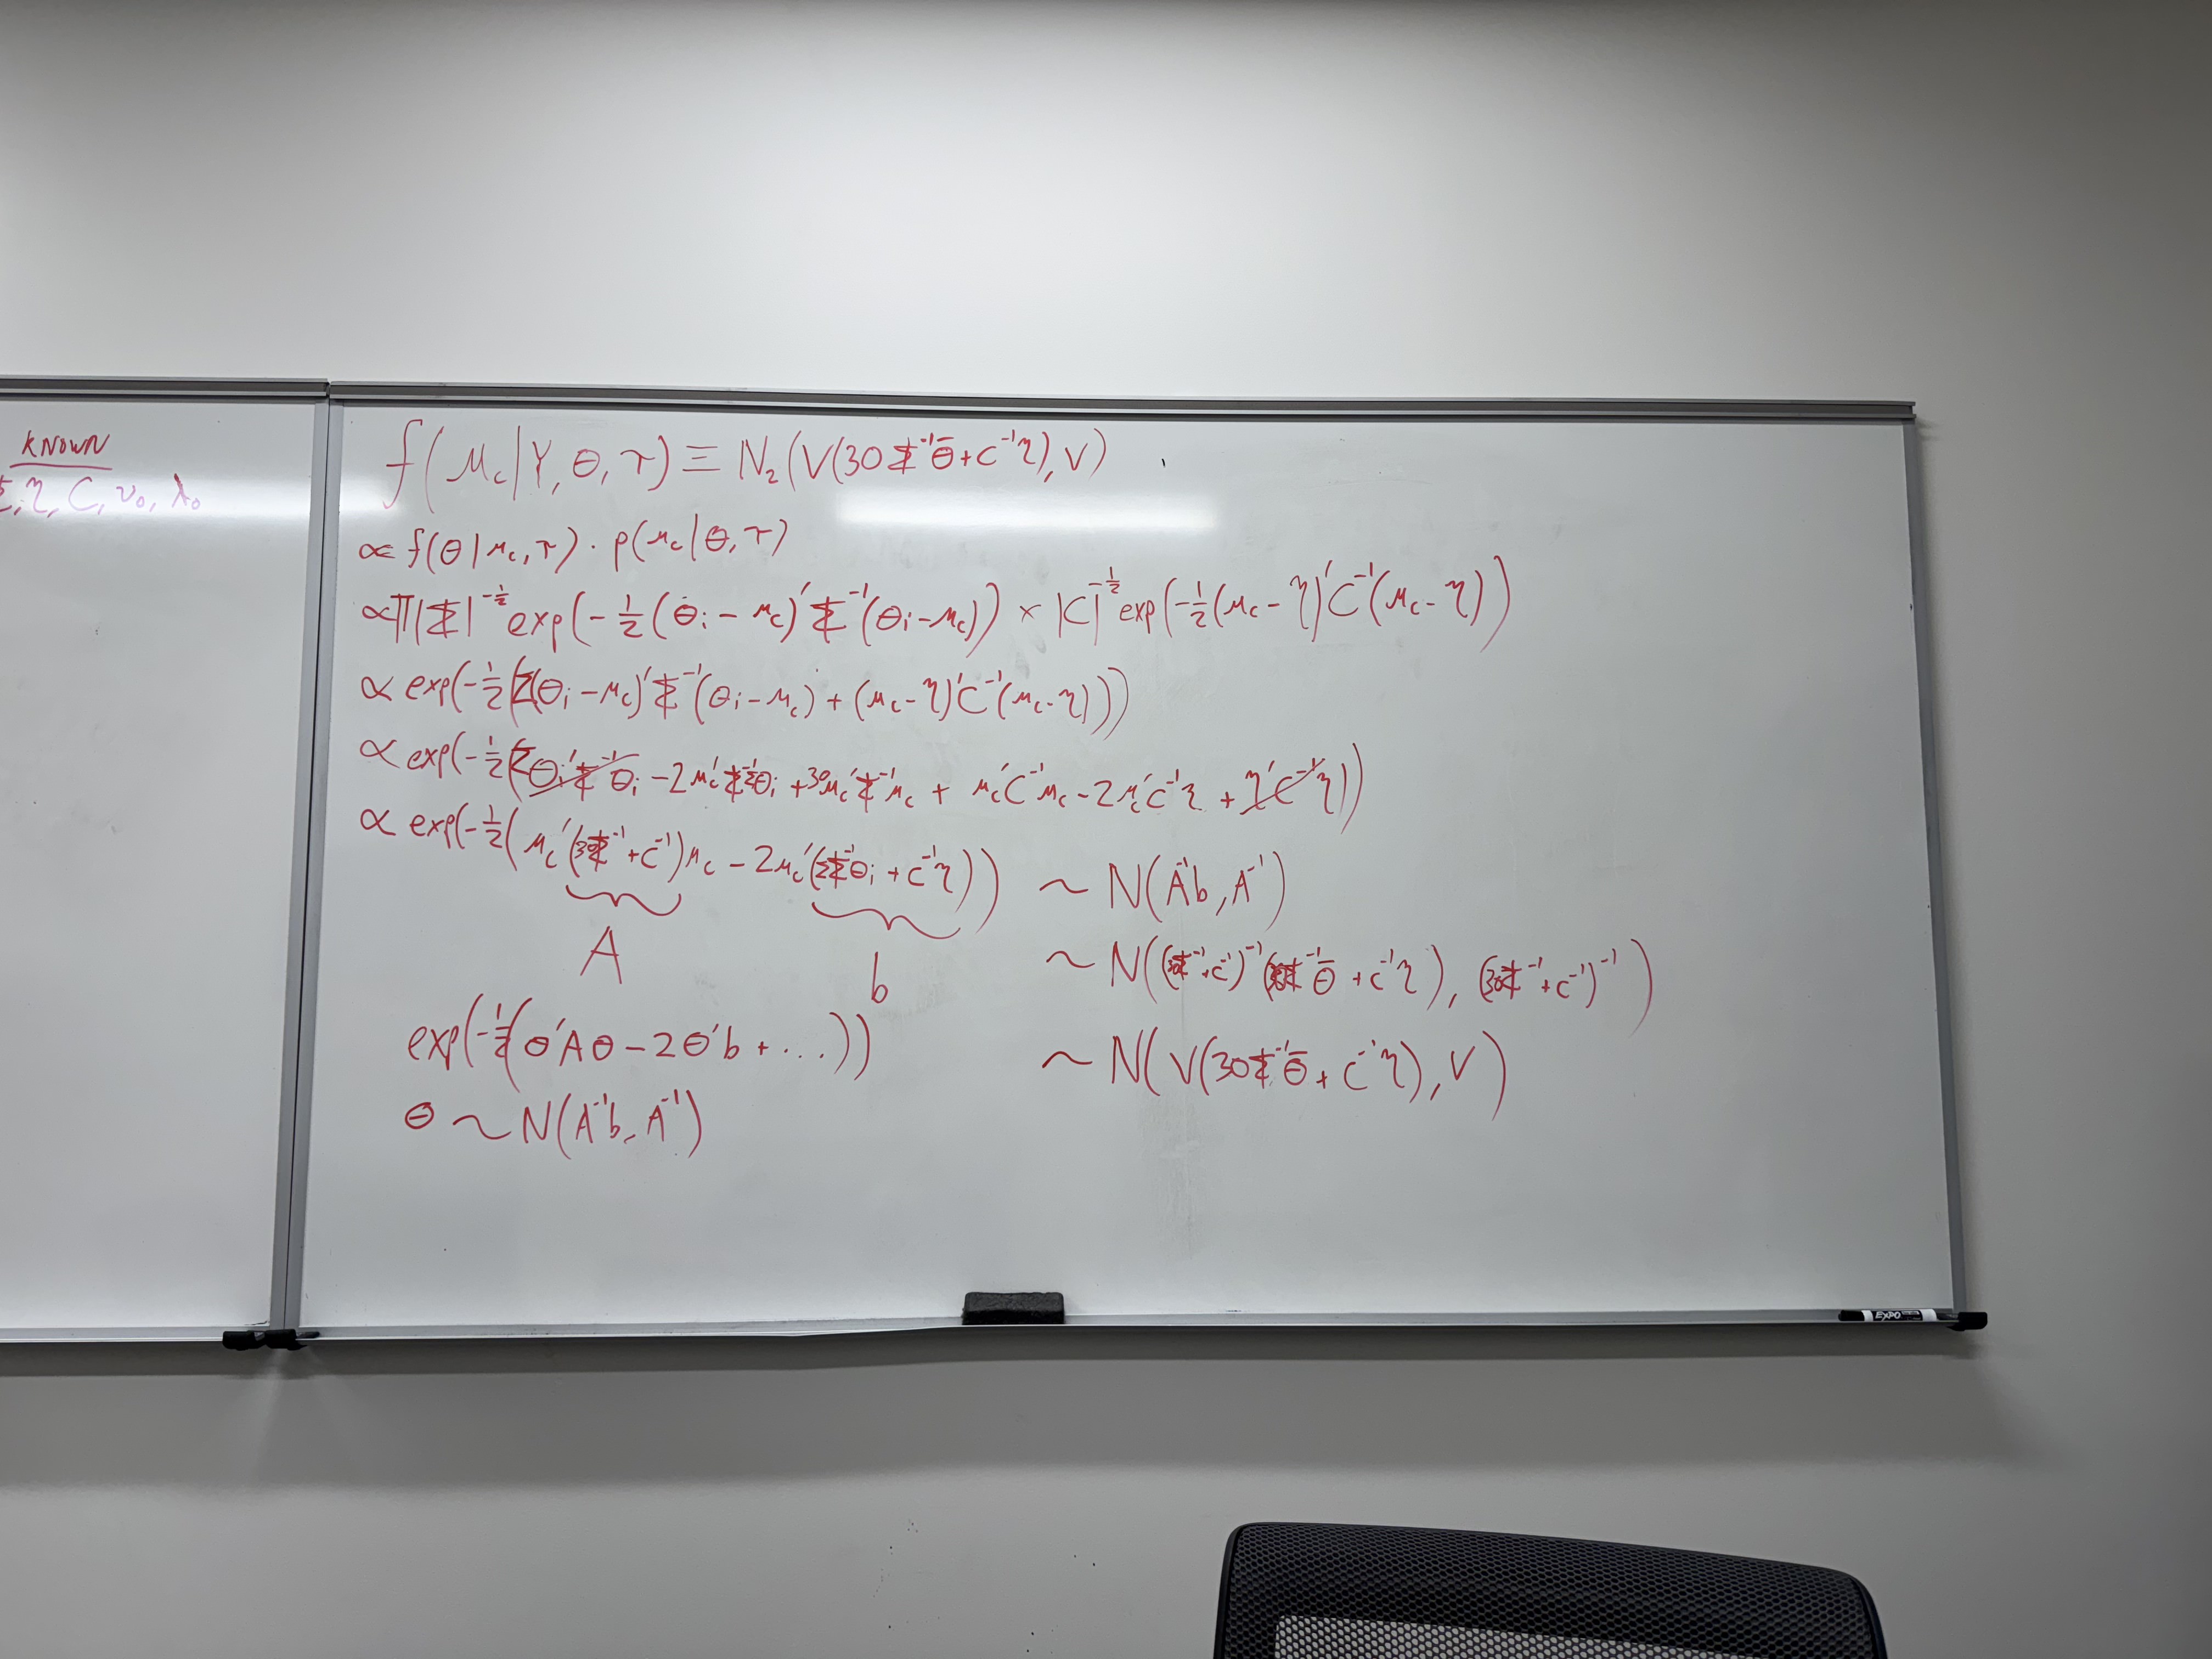 KNOWN
η, C, ν₀, λ₀
f(μ_c|Y, θ, τ) ≡ N₂(V(30Σ⁻¹θ̄+C⁻¹η), V)
∝ f(θ|μ_c, τ) · p(μ_c|θ, τ)
∝ Π|Σ|^{-1/2} exp(-1/2(θ_i - μ_c)'Σ⁻¹(θ_i-μ_c)) × |C|^{-1/2} exp(-1/2(μ_c-η)'C⁻¹(μ_c-η))
∝ exp(-1/2(Σ(θ_i-μ_c)'Σ⁻¹(θ_i-μ_c) + (μ_c-η)'C⁻¹(μ_c-η)))
∝ exp(-1/2(Σθ_i'Σ⁻¹θ_i - 2μ_c'Σ⁻¹Σθ_i + 30μ_c'Σ⁻¹μ_c + μ_c'C⁻¹μ_c - 2μ_c'C⁻¹η + η'C⁻¹η))
∝ exp(-1/2(μ_c'(30Σ⁻¹+C⁻¹)μ_c - 2μ_c'(ΣΣ⁻¹θ_i + C⁻¹η)))
A
b
exp(-1/2(θ'Aθ - 2θ'b + ...))
θ ~ N(A⁻¹b, A⁻¹)
~ N(A⁻¹b, A⁻¹)
~ N((30Σ⁻¹+C⁻¹)⁻¹(30Σ⁻¹θ̄ + C⁻¹η), (30Σ⁻¹+C⁻¹)⁻¹)
~ N(V(30Σ⁻¹θ̄ + C⁻¹η), V)
EXPO